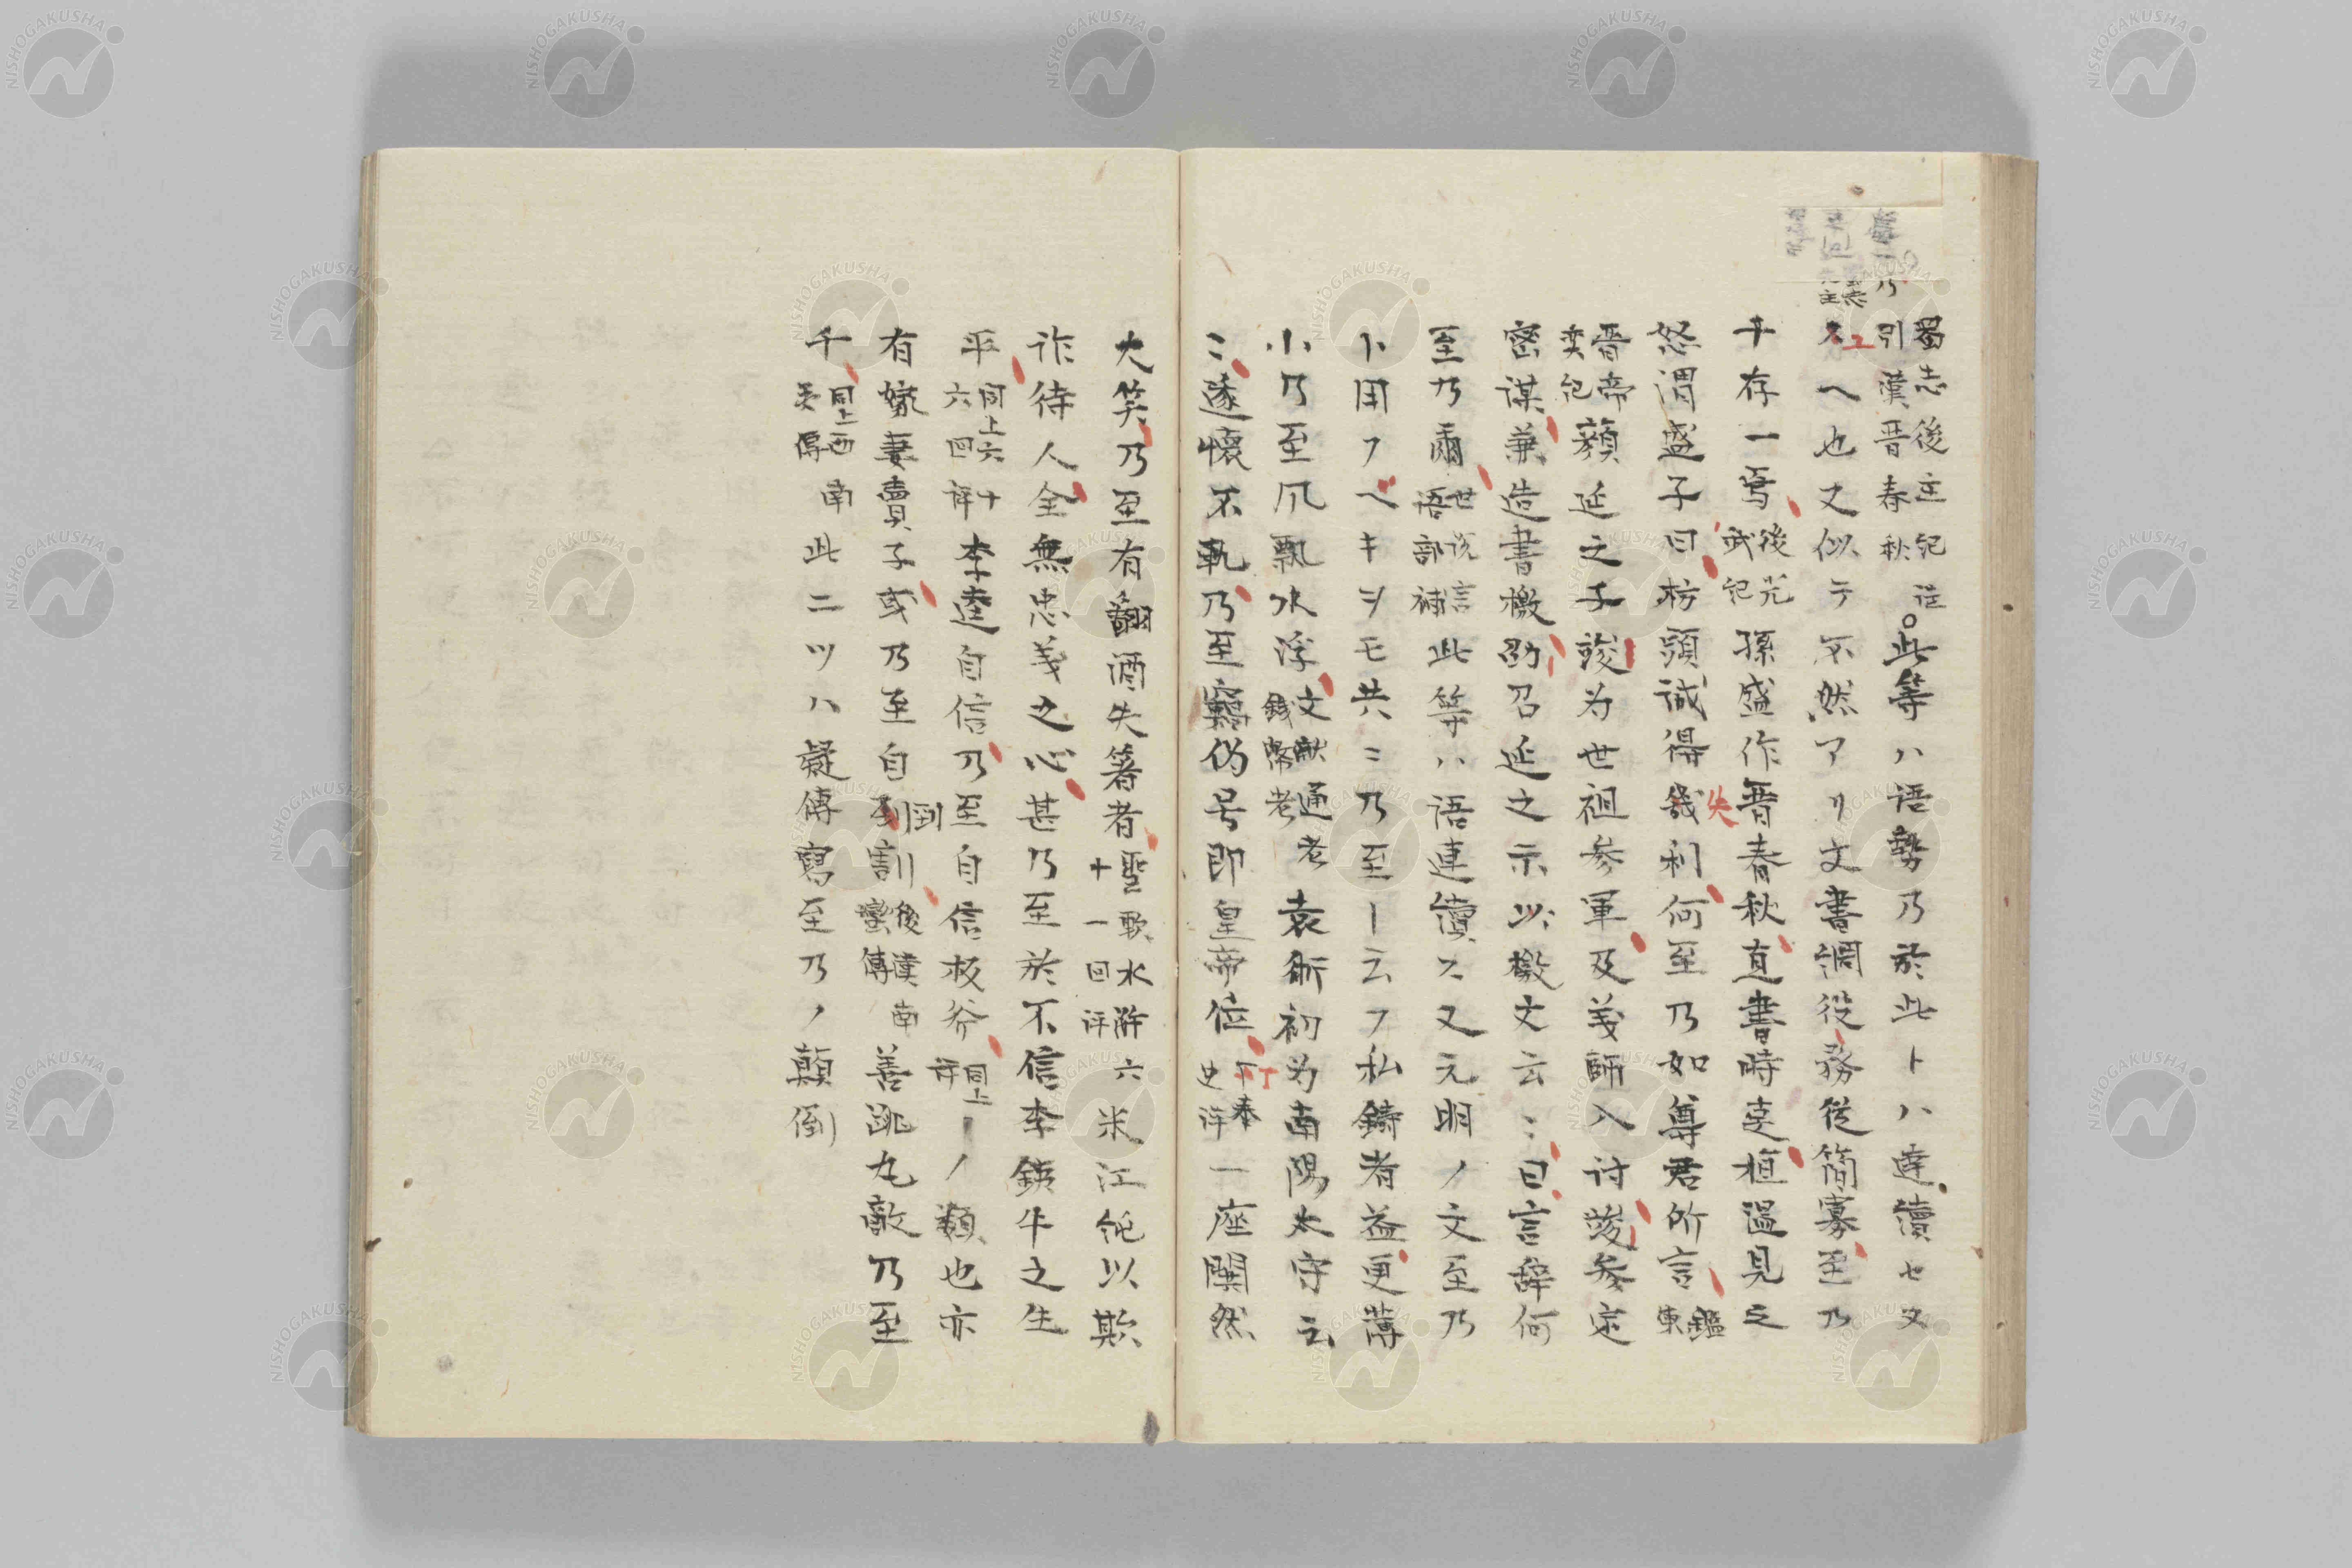 蜀志後主紀註引漢晋春秋 此等ハ語勢乃於此トハ連續セヌ
スヘ也又似テ不然アリ文書調役務従簡寡至乃
十存一焉 後光武記 孫盛作晋春秋直書時事桓温見之
怒謂盛子曰枋頭誠失利何至乃如尊君所言 鑑
晋帝奕紀 顔延之子竣为世祖参軍及義師入討竣参定
密謀兼造書檄劭召延之示以檄文云〻曰言辞何
至乃爾 世説言語部補 此等ハ語連續ス又元明ノ文至乃
ト用フヘキヲモ共ニ乃至ト云フ私鋳者益更薄
小乃至风飄水浮 文献通考錢幣考 袁術初为南陽太守云
〻遂懐不軌乃至竊伪号即皇帝位 丁奉史评 一座闃然
大笑乃至有翻酒失箸者 聖歎水滸六十一回评 宋江純以欺
詐待人全無忠義之心甚乃至於不信李鉄牛之生
平 同上六十六回評 李逵自信乃至自信板斧 同上評 ーノ類也亦
有嫁妻賣子或乃至自刭割 後漢南蠻傳 善跳丸數乃至
千 同上西南夷傳 此二ツハ疑傳寫至乃ノ顛倒